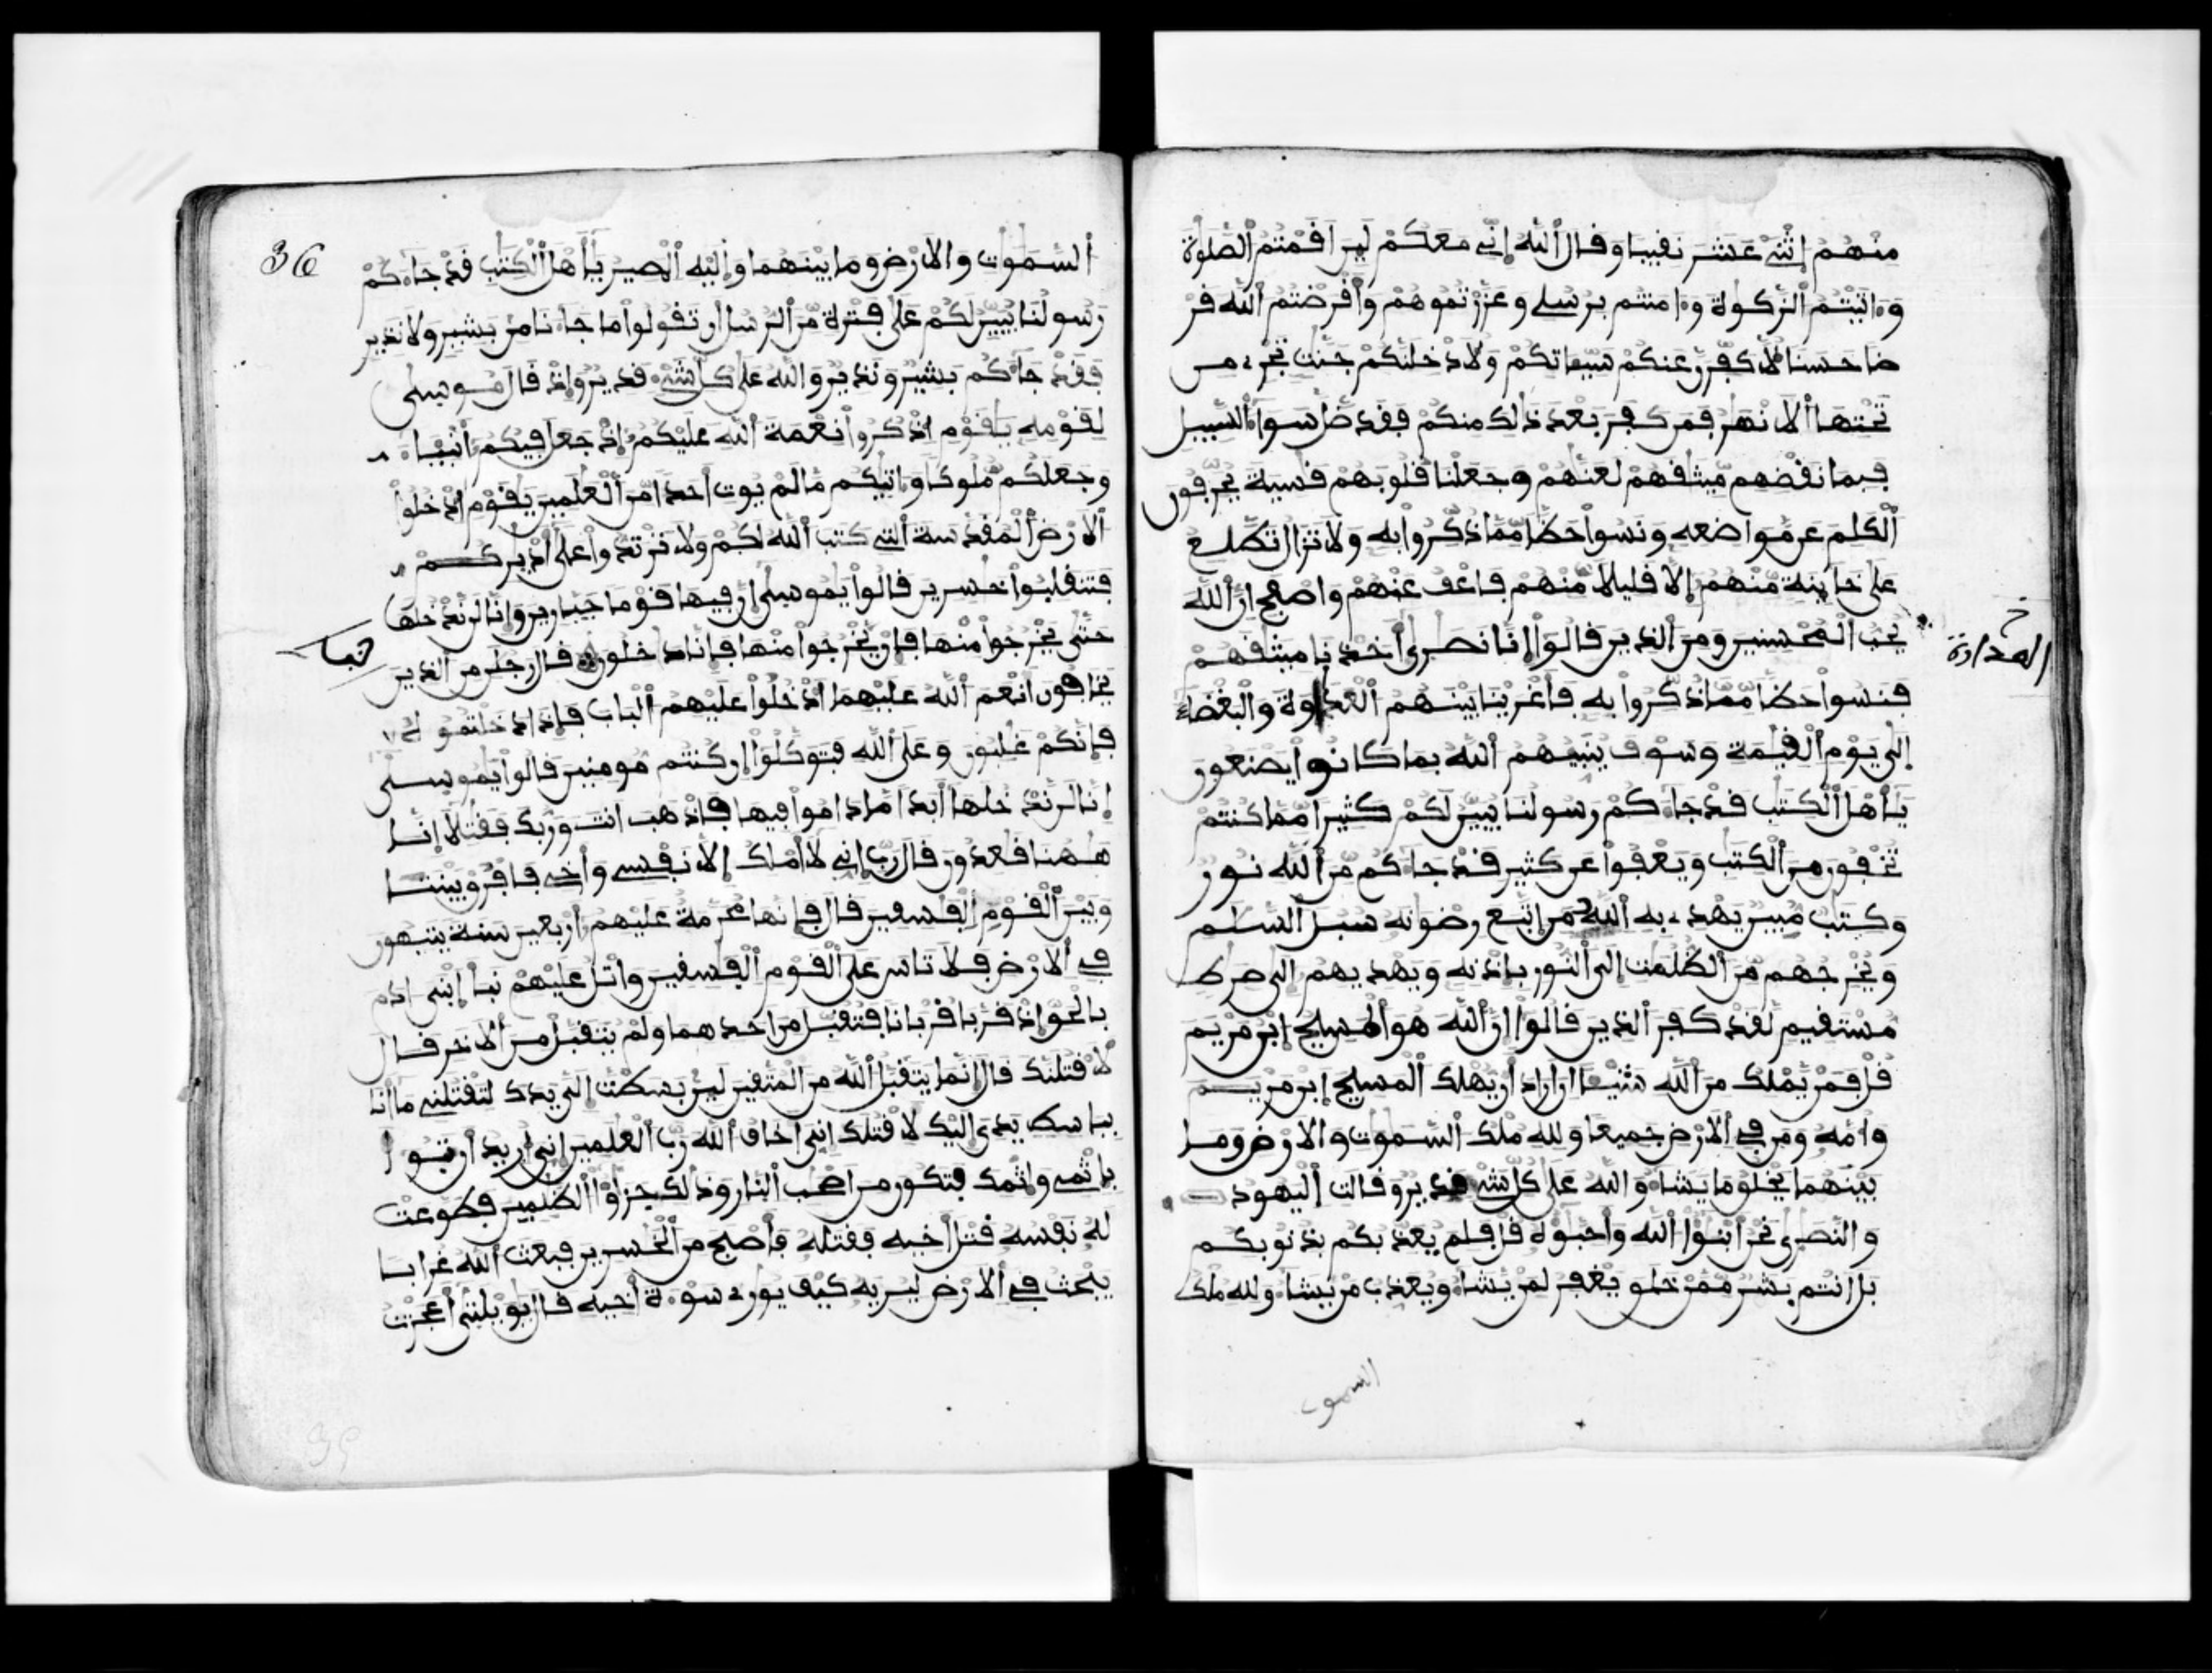 منهم إثنى عشر نقيبا وقال الله إني معكم لين اقمتم الصلوة
وءاتيتم الزكوة وءامنتم برسلي وعزرتموهم وأقرضتم الله قر
ضا حسنا لأكفرن عنكم سيئاتكم ولأدخلنكم جنت تجرى من
تحتها ألانهر فمن كفر بعد ذالك منكم فقد ضل سواء السبيل
فبما نقضهم ميثقهم لعنهم وجعلنا قلوبهم قسية يحرفون
ألكلم عن مواضعه ونسوا حظا مما ذكروا به ولا تزال تطلع
على خاينة منهم إلا قليلا منهم فاعف عنهم واصفح ان ألله
يحب المحسنين ومن ألذين قالوا إنا نصرى أخذنا ميثقهم
العداوة
فنسوا حظا مما ذكروا به فأغرينا بينهم ألعداوة والبغضاء
إلى يوم ألقيمة وسوف ينبيهم ألله بما كانوا يصنعون
يأهل ألكتب قد جاءكم رسولنا يبين لكم كثيرا مما كنتم
تخفون من ألكتب ويعفوا عن كثير قد جاءكم من ألله نور
وكتب مبين يهدى به ألله من اتبع رضونه سبل ألسلم
ويخرجهم من ألظلمت إلى ألنور باذنه ويهديهم الى صرط
مستقيم لقد كفر ألذين قالوا ان ألله هو ألمسيح إبن مريم
قل فمن يملك من ألله شيئا ان اراد أن يهلك ألمسيح إبن مريم
وأمه ومن في ألارض جميعا ولله ملك ألسموت والارض وما
بينهما يخلق ما يشاء والله على كل شىء قدير وقالت أليهود
والنصرى نحن ابنؤا ألله وأحبؤه قل فلم يعذبكم بذنوبكم
بل انتم بشر ممن خلق يغفر لمن يشاء ويعذب من يشاء ولله ملك
السموت
36
ألسموت والارض وما بينهما وإليه ألمصير يأهل ألكتب قد جاءكم
رسولنا يبين لكم على فترة من ألرسل أن تقولوا ما جاءنا من بشير ولا نذير
فقد جاءكم بشير ونذير والله على كل شىء قدير وإذ قال موسى
لقومه ياقوم اذكروا نعمة ألله عليكم إذ جعل فيكم أنبياء
وجعلكم ملوكا وءاتيكم ما لم يوت أحدا من ألعلمين يقوم ادخلوا
ألارض ألمقدسة ألتى كتب ألله لكم ولا ترتدوا على أدبركم
فتنقلبوا خسرين قالوا يموسى إن فيها قوما جبارين وإنا لن ندخلها
حتى يخرجوا منها فإن يخرجوا منها فإنا داخلون قال رجلن من ألذين
يخافون انعم ألله عليهما ادخلوا عليهم ألباب فإذا دخلتموه
فإنكم غلبون وعلى ألله فتوكلوا إن كنتم مومنين قالوا يموسى
إنا لن ندخلها أبدا ما داموا فيها فاذهب انت وربك فقتلا إنا
ههنا قعدون قال رب إني لا أملك إلا نفسي وأخي فافرق بيننا
وبين ألقوم ألفسقين قال فإنها محرمة عليهم أربعين سنة يتيهون
في ألارض فلا تاس على ألقوم ألفسقين واتل عليهم نبأ إبنى ادم
بالحق إذ قربا قربانا فتقبل من احدهما ولم يتقبل من ألاخر قال
لأقتلنك قال انما يتقبل ألله من المتقين لين بسطت إلي يدك لتقتلني ما انا
بباسط يدي إليك لأقتلك إني أخاف ألله رب ألعلمين إني أريد أن تبوأ
بإثمي وإثمك فتكون من اصحب ألنار وذلك جزاؤا ألظلمين فطوعت
له نفسه قتل أخيه فقتله فأصبح من ألخسرين فبعث ألله غرابا
يبحث في ألارض ليريه كيف يورى سوءة أخيه قال يويلتى أعجزت